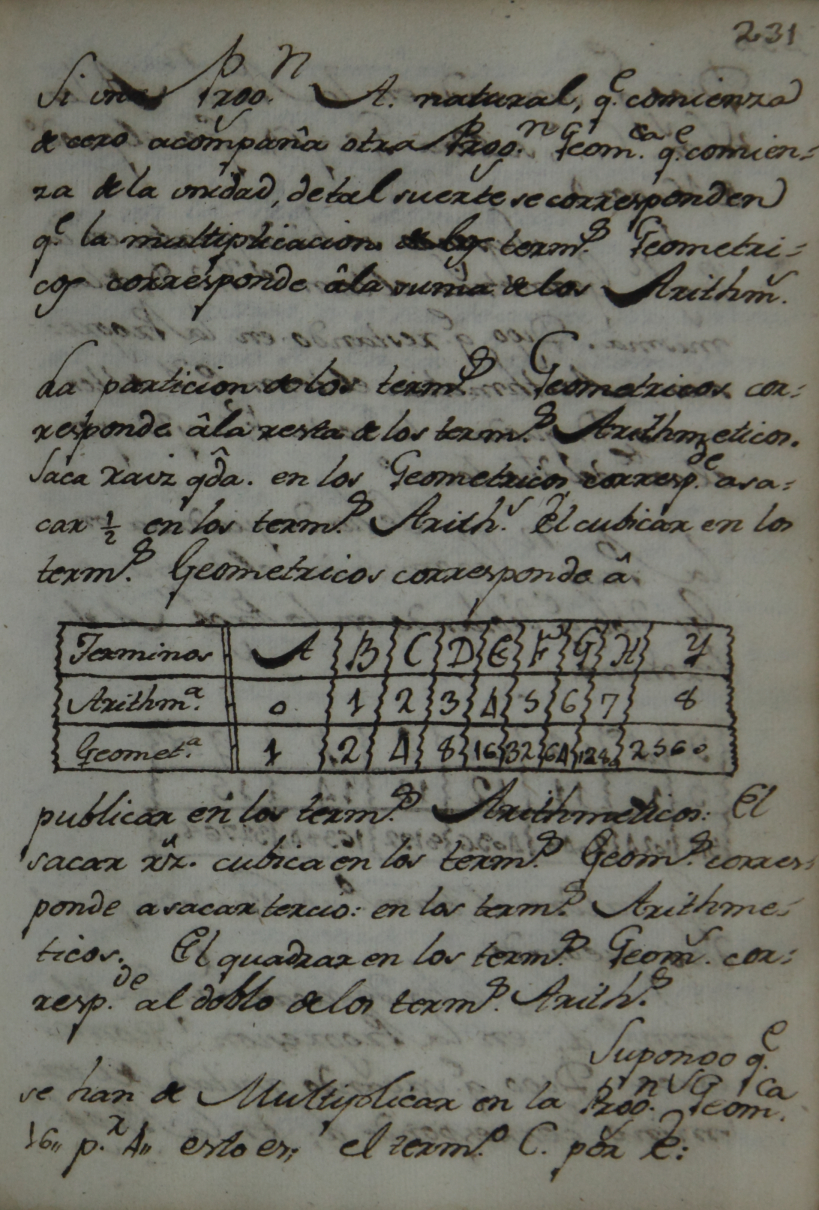 231
Si una Proo.n A. natural, q.e comienza
de cero acompaña otra Proo.n Geom.ca q.e comien=
za de la unidad, de tal suerte se corresponden
q.e la multiplicacion de los term.s Geometri=
cos corresponde â la suma de los Arithm.s
La particion de los term.s Geometricos cor=
responde â la resta de los term.s Arithmeticos.
Saca raiz qda. en los Geometricos corresp.de a sa=
car 1/2 en los term.s Arith.s El cubicar en los
term.s Geometricos corresponde â
Terminos A B C D E F G H Y
Arithm.a 0 1 2 3 4 5 6 7 8
Geomet.a 1 2 4 8 16 32 64 128 256
publicar en los term.s Arithmeticos: El
sacar rz. cubica en los term.s Geom.s corres=
ponde a sacar tercio: en los term.s Arithme=
ticos. El quadrar en los term.s Geom.s cor=
resp.de al doblo de los term.s Arith.s
Supongo q.e
se han de Multiplicar en la Proo.n Geom.ca
16,, p.r 4,, esto es; el term.o C. por E: